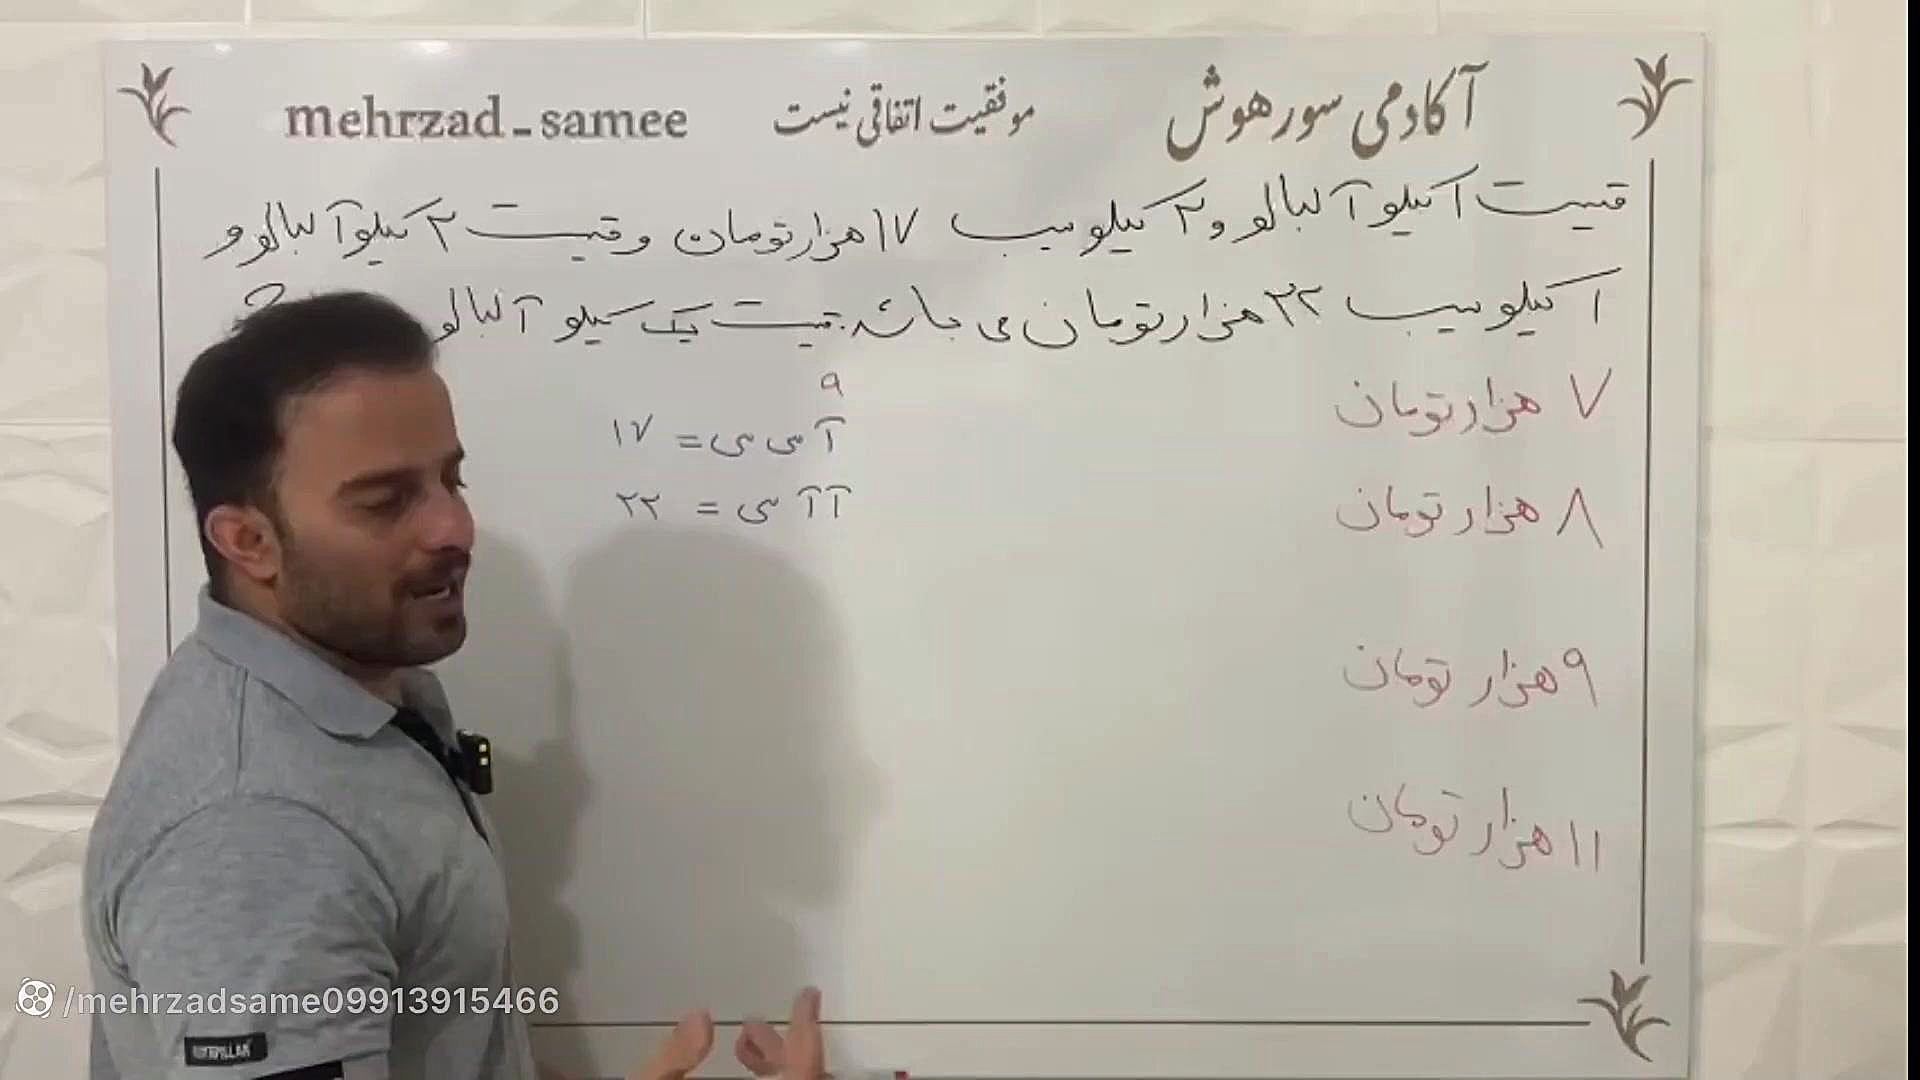 آکادمی سورهوش
موفقیت اتفاقی نیست
mehrzad-samee
قیمت ۱ کیلو آلبالو و ۲ کیلو سیب ۱۷ هزار تومان و قیمت ۲ کیلو آلبالو و
۱ کیلو سیب ۲۲ هزار تومان می باشد. قیمت یک کیلو آلبالو
۷ هزار تومان
۸ هزار تومان
۹ هزار تومان
۱۱ هزار تومان
۹
آ سی سی = ۱۷
آ آ سی = ۲۲
/mehrzadsame09913915466